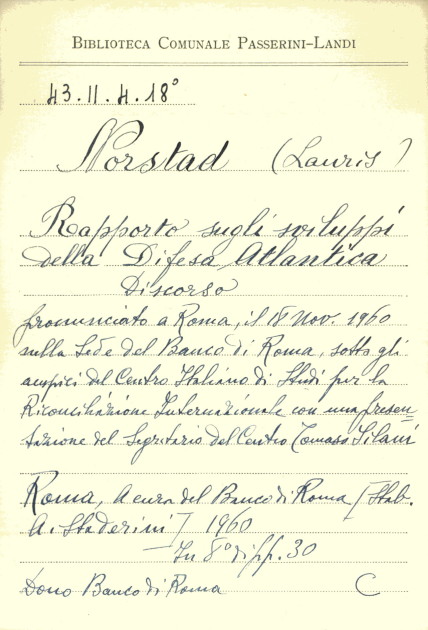 BIBLIOTECA COMUNALE PASSERINI-LANDI
43.II.4.18°
Norstad (Lauris)
Rapporto sugli sviluppi
della Difesa Atlantica
Discorso
pronunciato a Roma, il 18 Nov. 1960
sulla Sede del Banco di Roma, sotto gli
auspici del Centro Italiano di Studi per la
Riconciliazione Internazionale con una presen=
tazione del Segretario del Centro Tomaso Silani
Roma, A cura del Banco di Roma [Stab.
A. Staderini] 1960
In 8° di pp. 30
Dono Banco di Roma C